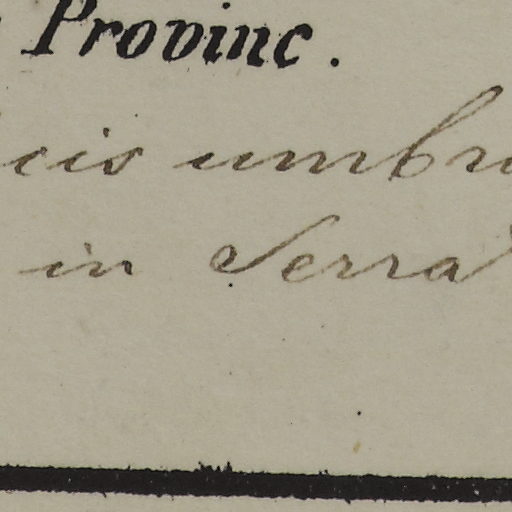 Provinc.
cis umbro
in Serra